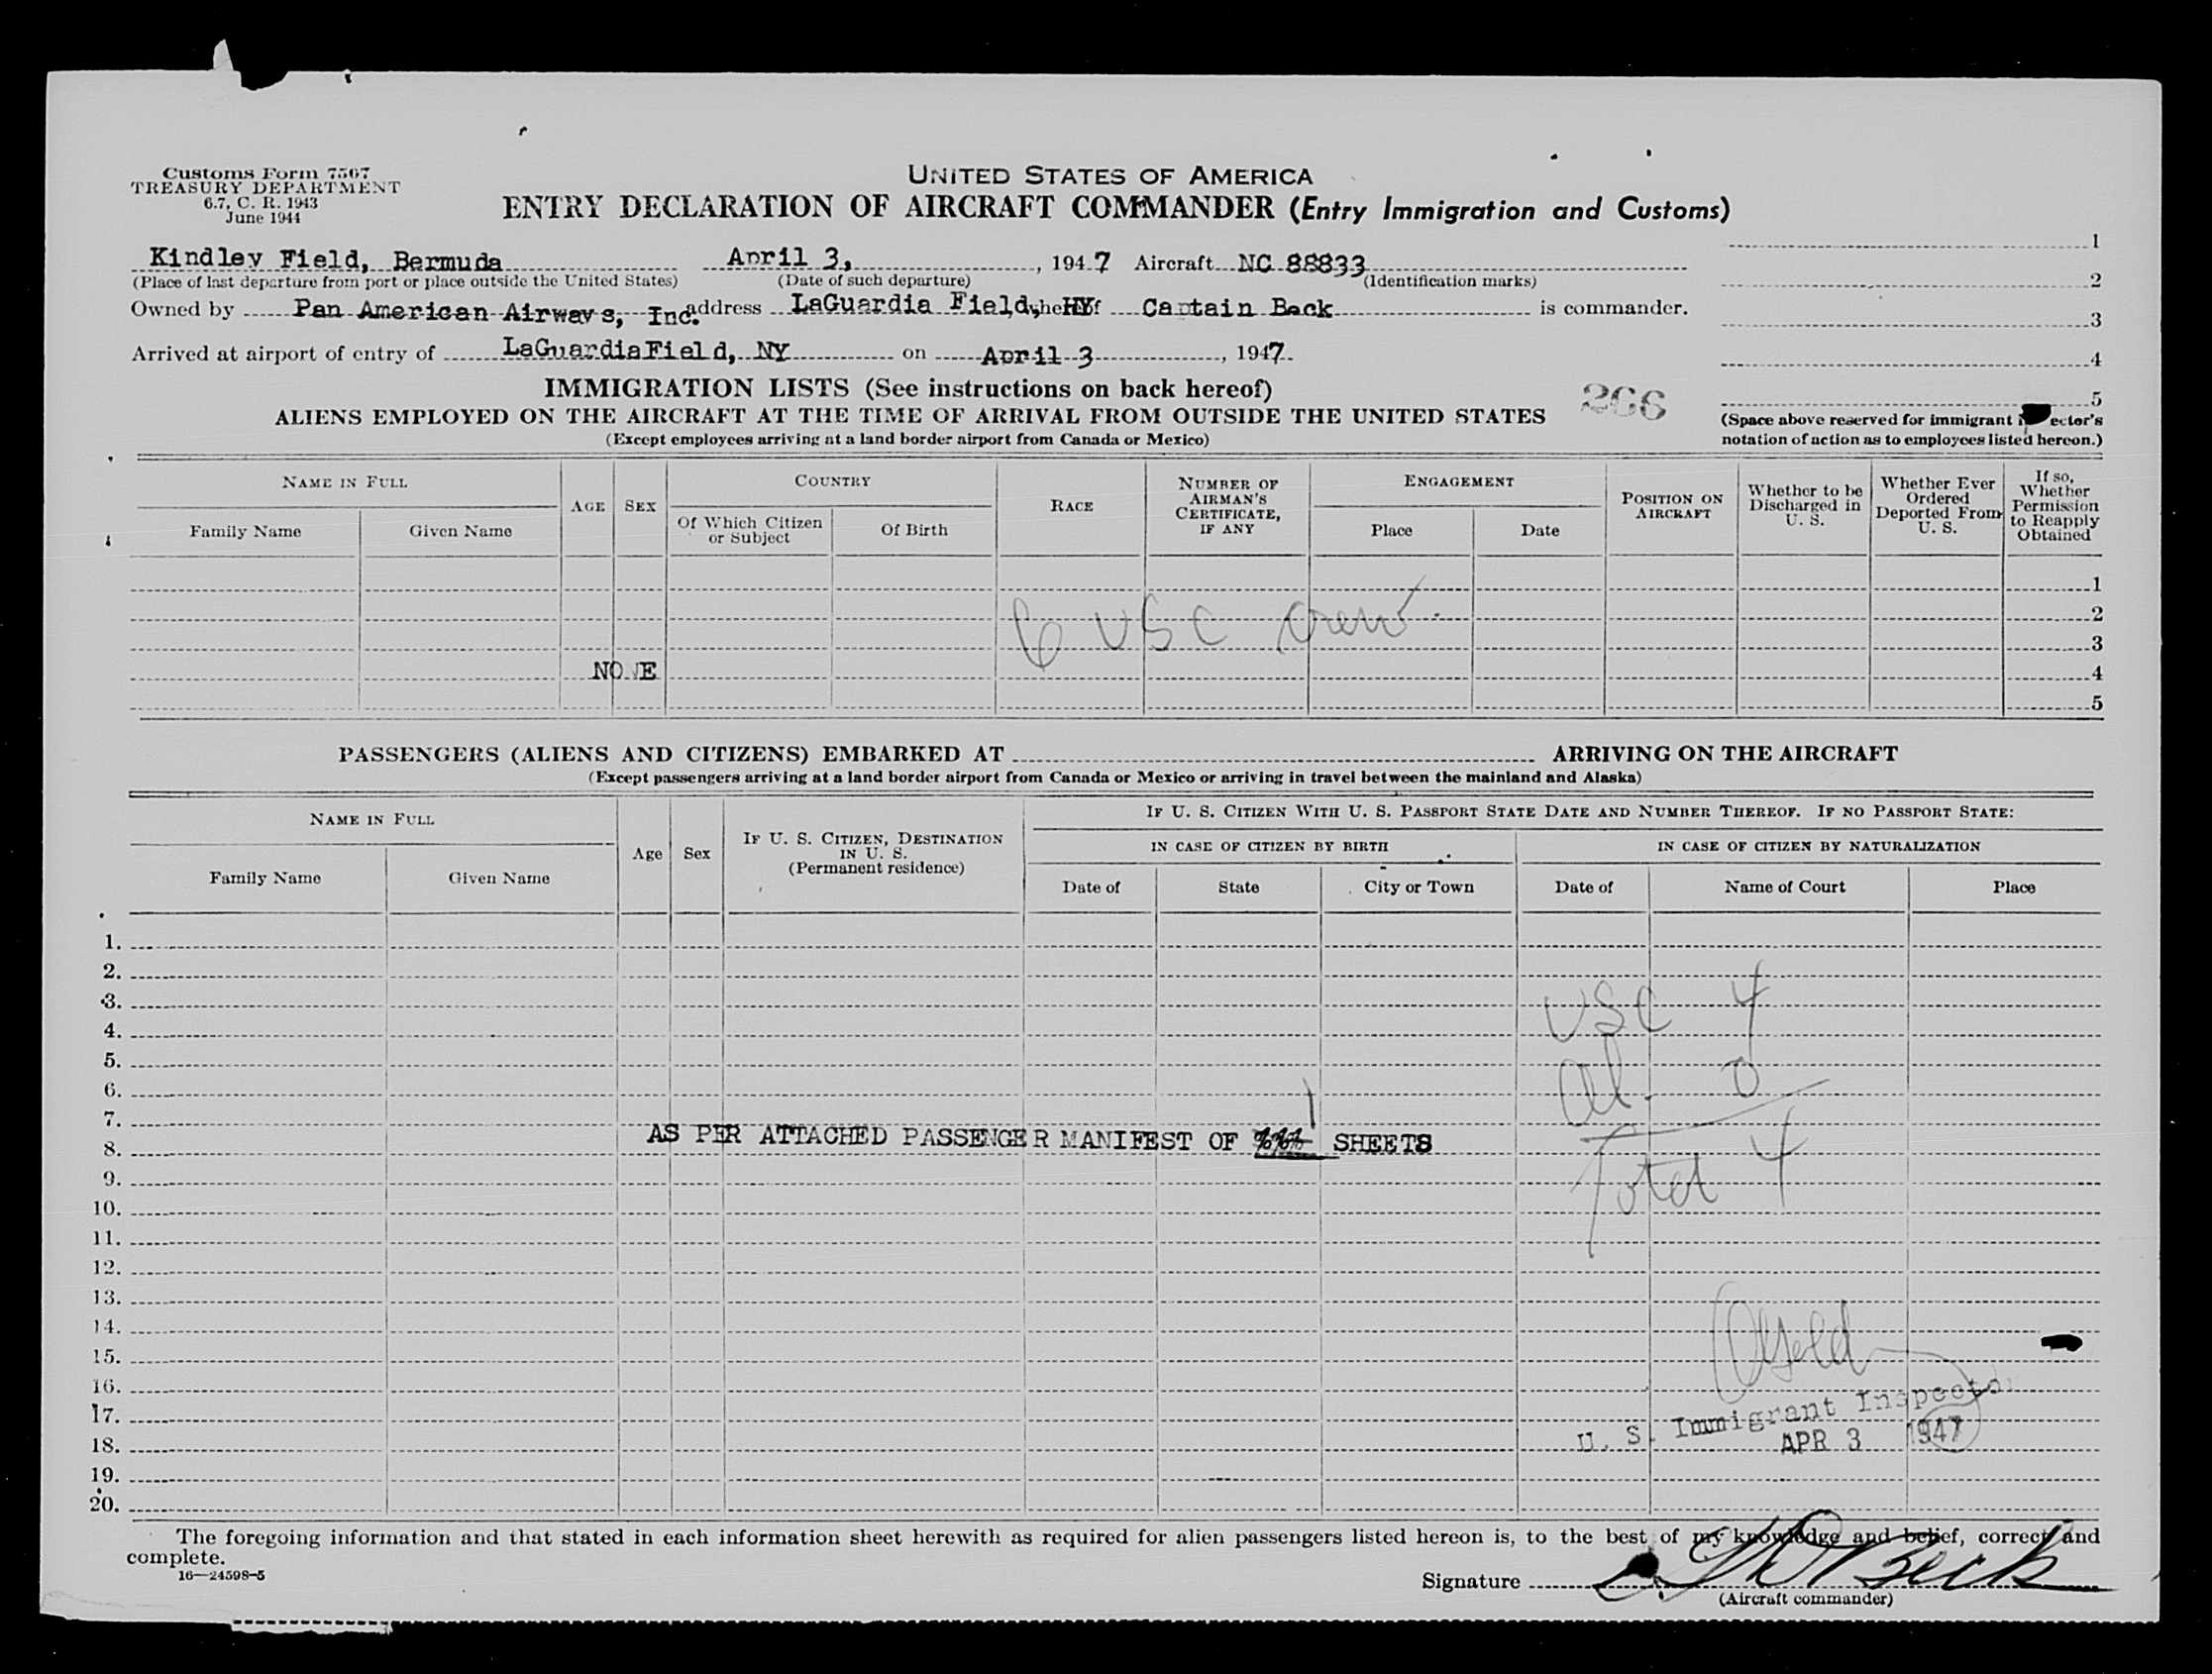 Customs Form 7507
TREASURY DEPARTMENT
6.7, C. R. 1943
June 1944
UNITED STATES OF AMERICA
ENTRY DECLARATION OF AIRCRAFT COMMANDER (Entry Immigration and Customs)
Kindley Field, Bermuda April 3, , 1947 Aircraft NC 88833
(Place of last departure from port or place outside the United States) (Date of such departure) (Identification marks)
Owned by Pan American Airways, Inc. address LaGuardia Field, NY Captain Beck is commander.
Arrived at airport of entry of LaGuardia Field, NY on April 3 , 1947.
1
2
3
4
5
(Space above reserved for immigrant
notation of action as to employees listed hereon.)
IMMIGRATION LISTS (See instructions on back hereof)
266
ALIENS EMPLOYED ON THE AIRCRAFT AT THE TIME OF ARRIVAL FROM OUTSIDE THE UNITED STATES
(Except employees arriving at a land border airport from Canada or Mexico)
NAME IN FULL
Family Name Given Name
AGE SEX
COUNTRY
Of Which Citizen or Subject
Of Birth
RACE
NUMBER OF AIRMAN'S CERTIFICATE, IF ANY
ENGAGEMENT
Place Date
POSITION ON AIRCRAFT
Whether to be Discharged in U. S.
Whether Ever Ordered Deported From U. S.
If so, Whether Permission to Reapply Obtained
1
2
6 USC crew
3
NONE 4
5
PASSENGERS (ALIENS AND CITIZENS) EMBARKED AT ARRIVING ON THE AIRCRAFT
(Except passengers arriving at a land border airport from Canada or Mexico or arriving in travel between the mainland and Alaska)
NAME IN FULL
Family Name Given Name
Age Sex
IF U. S. CITIZEN, DESTINATION IN U. S.
(Permanent residence)
IF U. S. CITIZEN WITH U. S. PASSPORT STATE DATE AND NUMBER THEREOF. IF NO PASSPORT STATE:
IN CASE OF CITIZEN BY BIRTH IN CASE OF CITIZEN BY NATURALIZATION
Date of State City or Town Date of Name of Court Place
1.
2.
3. USC 4
4.
5.
6. al. 0
7. 1
8. AS PER ATTACHED PASSENGER MANIFEST OF SHEETS
9. Total 4
10.
11.
12.
13.
14.
15.
16.
17. U. S. Immigrant Inspector
18. APR 3 1947
19.
20.
The foregoing information and that stated in each information sheet herewith as required for alien passengers listed hereon is, to the best of my knowledge and belief, correct and
complete.
16—24598-5
Signature Beck
(Aircraft commander)